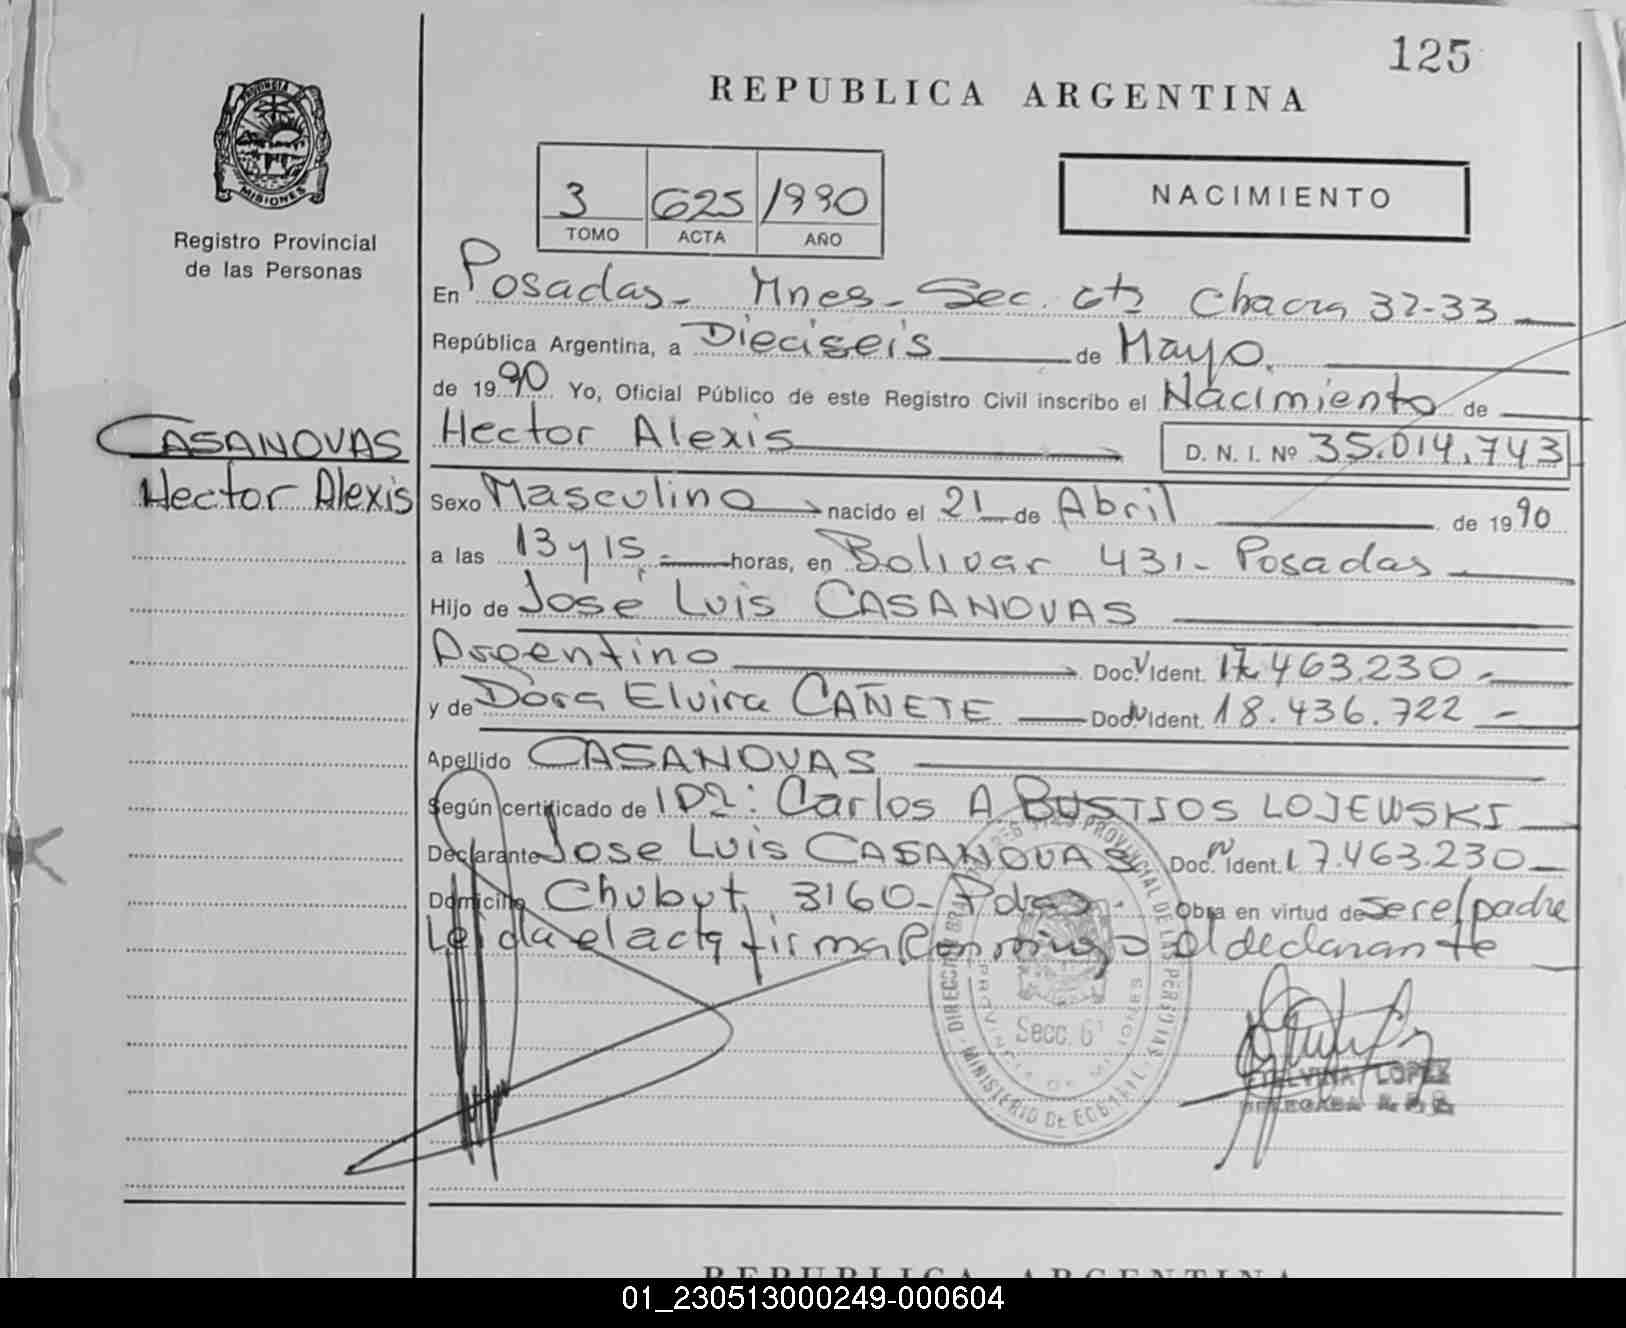 125
REPUBLICA ARGENTINA
PROVINCIA DE
MISIONES
Registro Provincial
de las Personas
3 625 1990
TOMO ACTA AÑO
NACIMIENTO
En Posadas - Mnes - Sec. 6ta Chacra 32-33
República Argentina, a Dieciseis de Mayo
de 1990 Yo, Oficial Público de este Registro Civil inscribo el Nacimiento de
CASANOVAS
Hector Alexis
Hector Alexis D. N. I. Nº 35.014.743
Sexo Masculino nacido el 21 de Abril de 1990
a las 13 y 15.- horas, en Bolivar 431 - Posadas
Hijo de Jose Luis CASANOVAS
Argentino Doc. Ident. 17.463.230 -
y de Dora Elvira CAÑETE Doc. Ident. 18.436.722 -
Apellido CASANOVAS
Según certificado de Carlos A BUSTJOS LOJEWSKI
Declarante Jose Luis CASANOVAS Doc. Ident. 17.463.230
Domicilio Chubut 3160 - Pdas. Obra en virtud de ser el padre
Leida el acta firma conmigo el declarante
REGISTRO PROVINCIAL DE LAS PERSONAS
MINISTERIO DE GOBIERNO
PROVINCIA DE MISIONES
Secc. 6ª
LOPEZ
REPUBLICA ARGENTINA
01_230513000249-000604